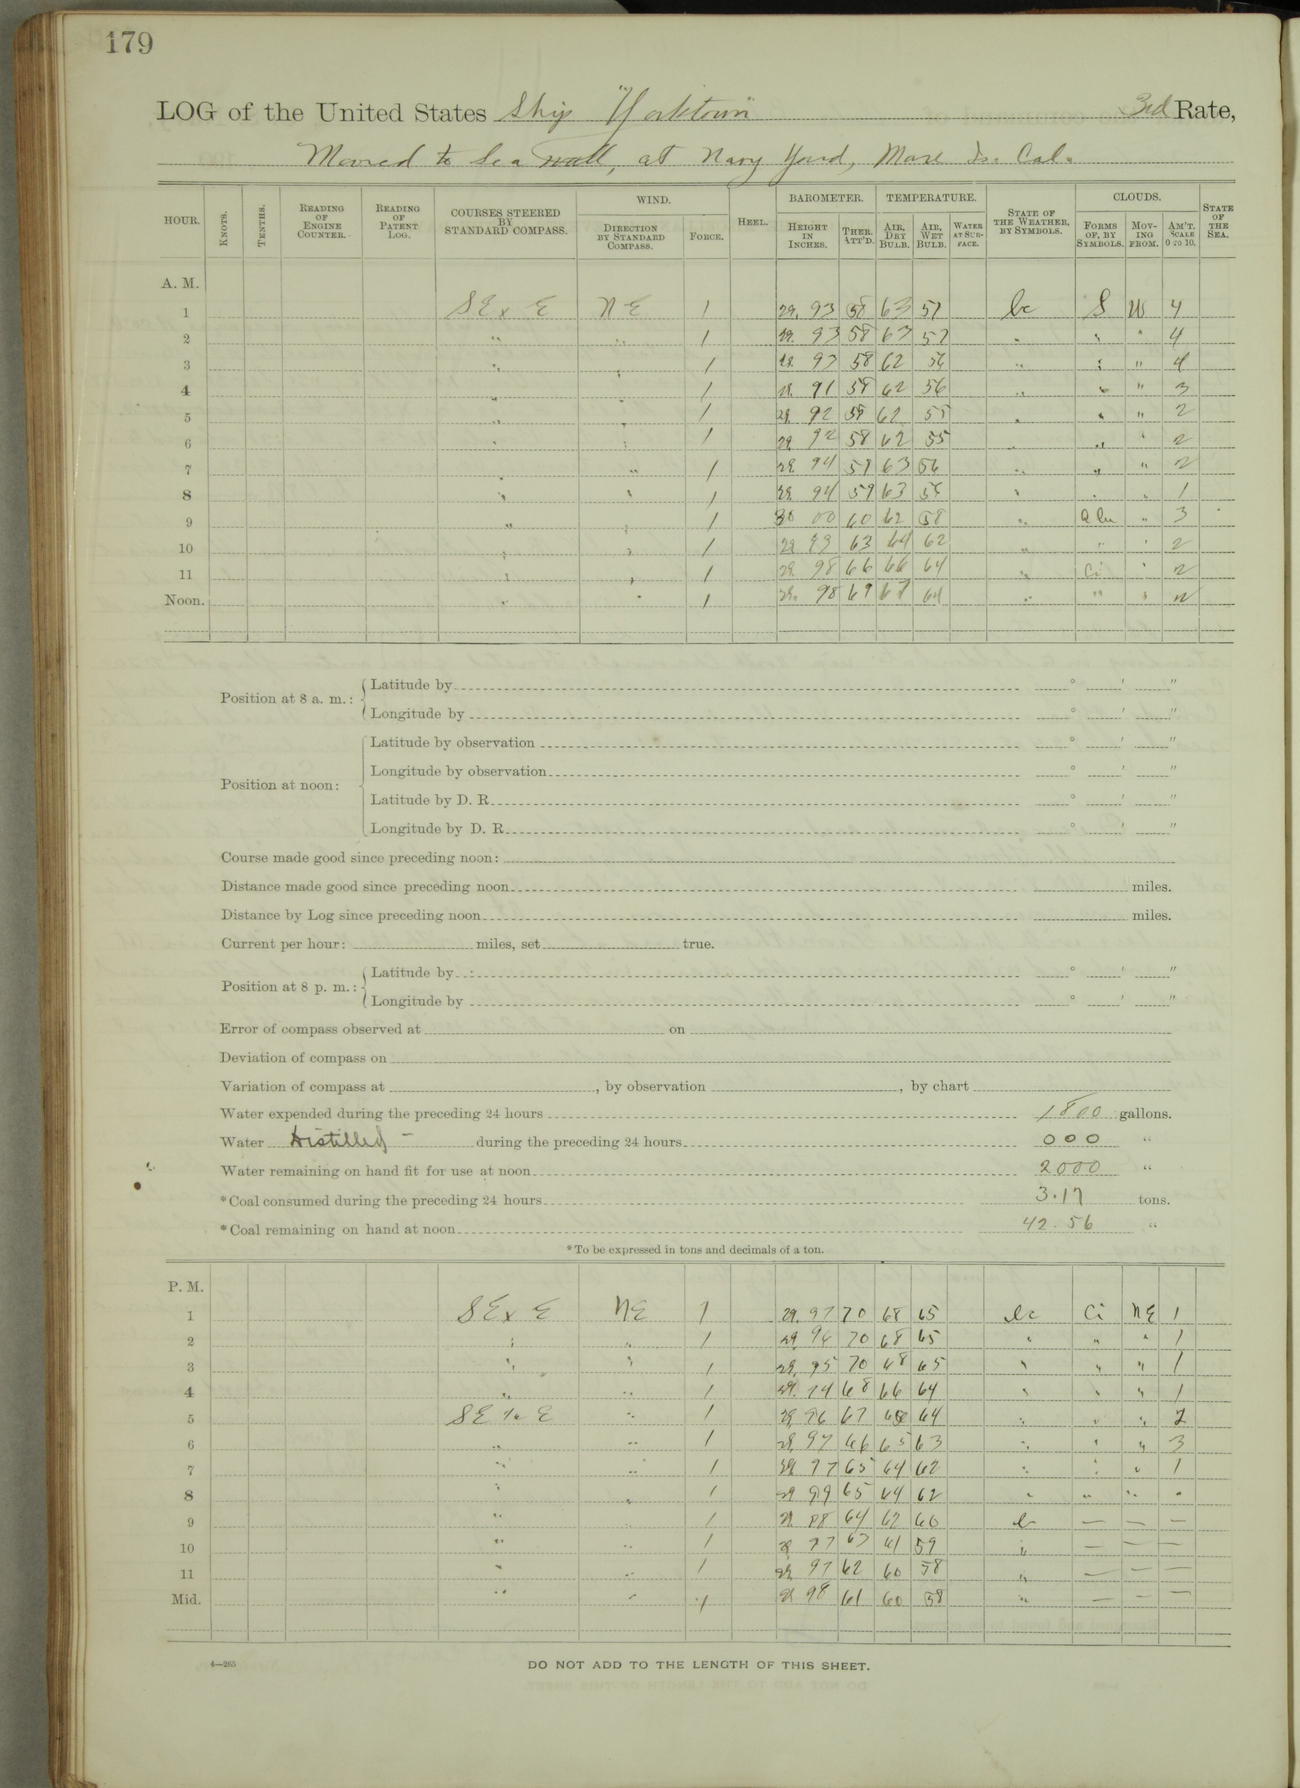 179
LOG of the United States Ship "Yorktown" 3rd Rate,
Moored to Sea wall, at Navy Yard, Mare Is. Cal.
HOUR. KNOTS. TENTHS. READING OF ENGINE COUNTER. READING OF PATENT LOG. COURSES STEERED BY STANDARD COMPASS. WIND. DIRECTION BY STANDARD COMPASS. FORCE. HEEL. BAROMETER. HEIGHT IN INCHES. THER. ATT'D. TEMPERATURE. AIR, DRY BULB. AIR, WET BULB. WATER AT SURFACE. STATE OF THE WEATHER, BY SYMBOLS. CLOUDS. FORMS OF, BY SYMBOLS. MOVING FROM. AM'T. SCALE 0 TO 10. STATE OF THE SEA.
A. M.
1 SE x E NE 1 29.93 58 63 57 bc S W 4
2 " " 1 29.93 58 63 57 " " " 4
3 " " 1 29.93 58 62 56 " " " 4
4 " " 1 29.91 58 62 56 " " " 3
5 " " 1 29.92 58 62 55 " " " 2
6 " " 1 29.92 58 62 55 " " " 2
7 " " 1 29.94 59 63 56 " " " 2
8 " " 1 29.94 59 63 56 " " " 1
9 " " 1 30.00 60 62 58 " " 3
10 " " 1 29.99 63 64 62 " " " 2
11 " " 1 29.98 66 66 64 " Ci " 2
Noon. " " 1 29.98 69 67 64 " " " 2
Position at 8 a. m.: Latitude by ° ' "
Longitude by ° ' "
Position at noon: Latitude by observation ° ' "
Longitude by observation ° ' "
Latitude by D. R. ° ' "
Longitude by D. R. ° ' "
Course made good since preceding noon:
Distance made good since preceding noon miles.
Distance by Log since preceding noon miles.
Current per hour: miles, set true.
Position at 8 p. m.: Latitude by ° ' "
Longitude by ° ' "
Error of compass observed at on
Deviation of compass on
Variation of compass at , by observation , by chart
Water expended during the preceding 24 hours 1800 gallons.
Water Distilled - during the preceding 24 hours 000 "
Water remaining on hand fit for use at noon 2000 "
*Coal consumed during the preceding 24 hours 3.17 tons.
*Coal remaining on hand at noon 42.56 "
*To be expressed in tons and decimals of a ton.
P. M.
1 SE x E NE 1 29.97 70 68 65 bc Ci NE 1
2 " " 1 29.96 70 68 65 " " " 1
3 " " 1 29.95 70 68 65 " " " 1
4 " " 1 29.94 68 66 64 " " " 1
5 SE " 1 29.96 67 64 " " " 2
6 " " 1 29.97 66 65 63 " " " 3
7 " " 1 29.97 65 64 62 " " " 1
8 " " 1 29.99 65 64 62 " " " "
9 " " 1 29.98 64 62 60 b — — —
10 " " 1 29.97 63 61 59 " — — —
11 " " 1 29.97 62 60 58 " — — —
Mid. " " 1 29.98 61 60 58 " — — —
4—265
DO NOT ADD TO THE LENGTH OF THIS SHEET.